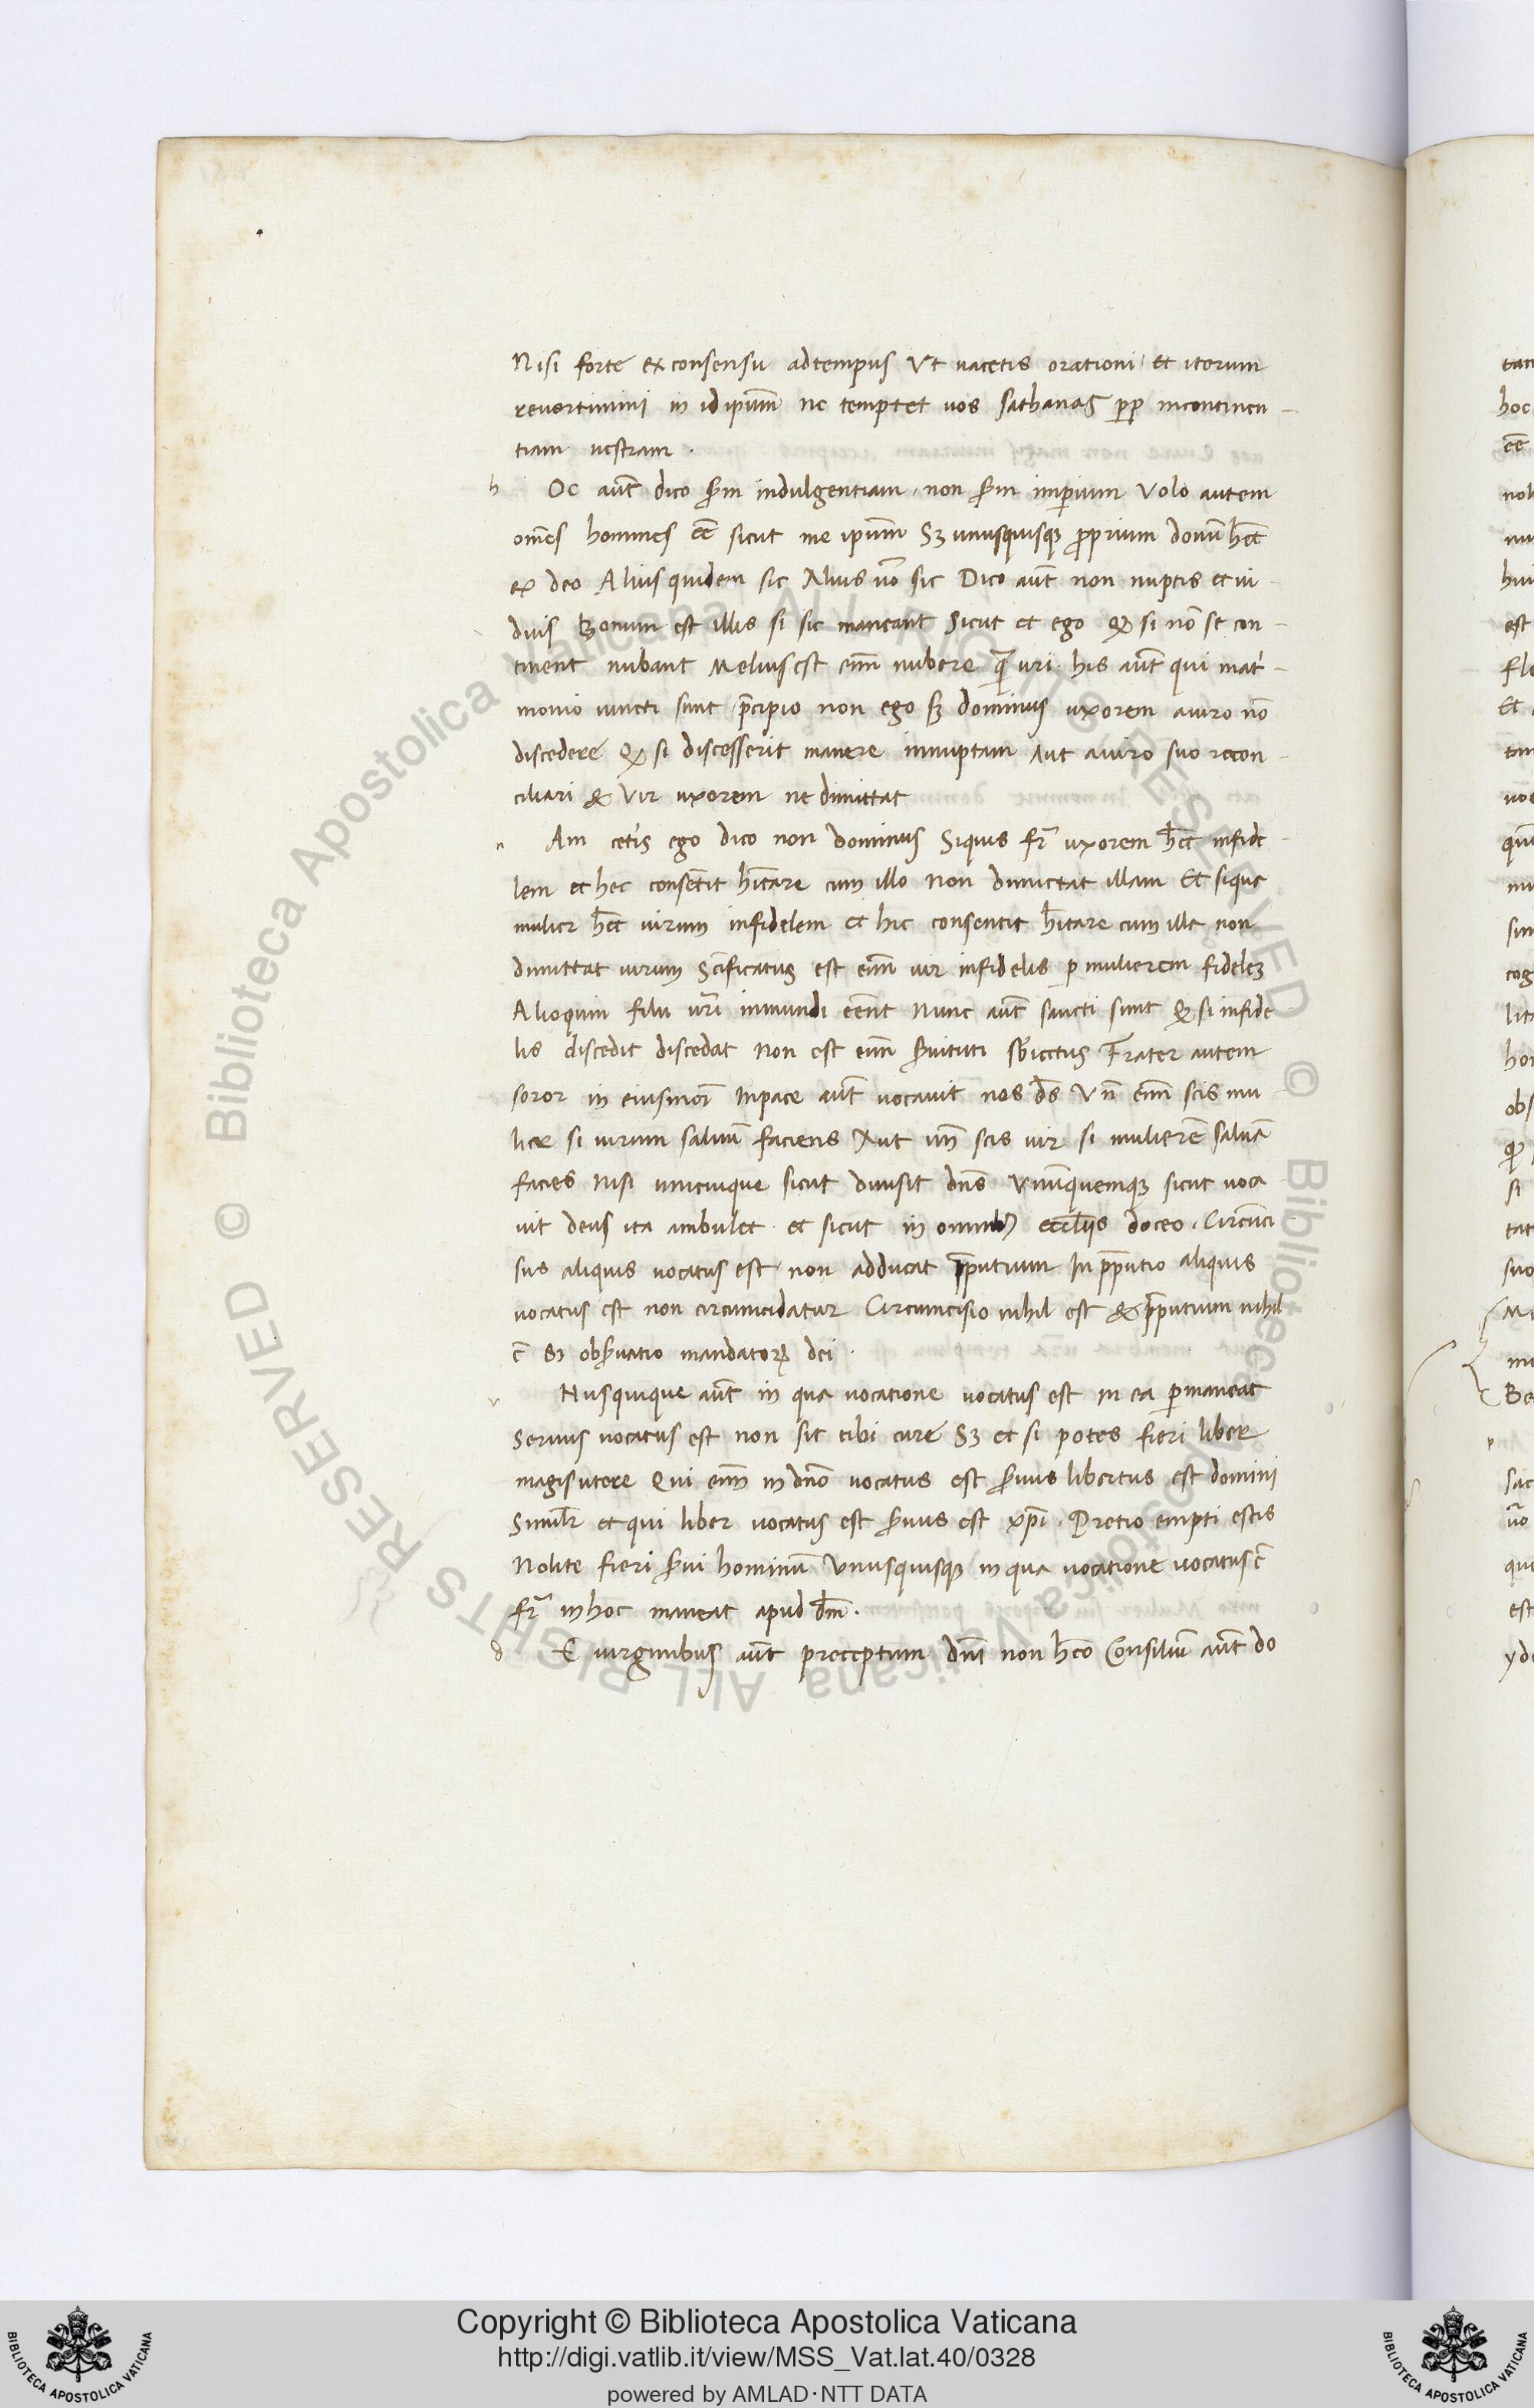 Nisi forte ex consensu ad tempus Vt vacetis orationi et iterum
reuertimini in id ipsum̄ ne temptet uos sathanas ꝓp incontinen-
tiam vestram.
h Oc aūt dico s̄m indulgentiam. non s̄m imperium Volo autem
om̄es homines eē sicut me ipsum̄ Sꝫ unusquisqꝫ proprium donū h̄et
ex deo Alius quidem sic Alius u̅o sic Dico aūt non nuptis et ui-
duis Bonum est illis si sic maneant Sicut et ego Qꝫ si nō se con-
tinent nubant Melius est enī nubere qͣ̄ uri his aūt qui mat-
monio iuncti sunt p̄cipio non ego sꝫ dominus uxorem a uiro nō
discedere Qꝫ si discesserit manere innuptam Aut a uiro suo recon-
ciliari & Vir uxorem ne dimittat
n Am cet̾is ego dico non dominus Siquis fr̄ uxorem h̄et infide-
lem et hec consētit hītare cum illo Non dimictat illam Et si que
mulier h̄et uirum infidelem et hic consentit h̄itare cum illa non
dimittat uirum Sc̄ificatus est enī uir infidelis p mulierem fideleꝫ
Alioquin filii ur̄i inmundi eēnt Nunc aūt sancti sunt Qꝫ si infide
lis discedit discedat Non est enī s̄uituti sb̄iectus Frater autem
soror in eiusmōi In pace aūt uocauit nos d̄s Vn̄ enī scis mu
lier si uirum saluū faciens Aut un̄ scis uir si mulierē saluā
facies Nisi unicuique sicut diuisit dn̄s Vnūquemqꝫ sicut uoca
uit deus ita ambulet. et sicut in omnibꝫ eccl̄iis doceo. Circūci
sus aliquis uocatus est non adducat p̄putium In p̄putio aliquis
uocatus est non circumcidatur Circumcisio nihil est & p̄putium nihil
ē Sꝫ obs̄uatio mandatoꝝ dei.
v Nusquique aūt in qua uocatione uocatus est in ea p̱maneat
Seruus uocatus est non sit tibi cure Sꝫ et si potes fieri liber
magis utere Qui enī in dn̄o uocatus est s̄uus libertus est domini
Simil̄r et qui liber uocatus est s̄uus est xp̄i. Pretio empti estis
Nolite fieri s̄ui hominū Vnusquisqꝫ in qua uocatione uocatus ē
fr̄ in hoc maneat apud d̄m.
d E uirginibus aūt preceptum dn̄i non h̄eo Consiliū aūt do
Copyright © Biblioteca Apostolica Vaticana
http://digi.vatlib.it/view/MSS_Vat.lat.40/0328
powered by AMLAD·NTT DATA